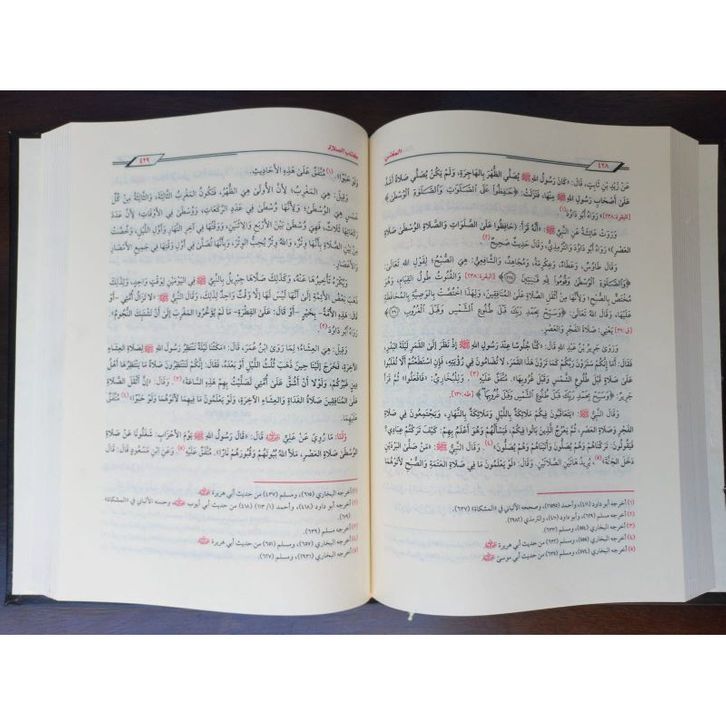 ٤٢٨
المغني
عَنْ زَيْدِ بْنِ ثَابِتٍ، قَالَ: «كَانَ رَسُولُ اللهِ ﷺ يُصَلِّي الظُّهْرَ بِالْهَاجِرَةِ، وَلَمْ يَكُنْ يُصَلِّي صَلَاةً أَشَدَّ
عَلَى أَصْحَابِ رَسُولِ اللهِ ﷺ مِنْهَا، فَنَزَلَتْ: ﴿حَافِظُوا عَلَى الصَّلَوَاتِ وَالصَّلَاةِ الْوُسْطَى﴾
[البقرة: ٢٣٨]» رَوَاهُ أَبُو دَاوُدَ (١).
وَرَوَتْ عَائِشَةُ عَنِ النَّبِيِّ ﷺ، «أَنَّهُ قَرَأَ: (حَافِظُوا عَلَى الصَّلَوَاتِ وَالصَّلَاةِ الْوُسْطَى وَصَلَاةِ
الْعَصْرِ)» رَوَاهُ أَبُو دَاوُدَ وَالتِّرْمِذِيُّ، وَقَالَ: حَدِيثٌ صَحِيحٌ (٢).
وَقَالَ طَاوُسٌ، وَعَطَاءٌ، وَعِكْرِمَةُ، وَمُجَاهِدٌ، وَالشَّافِعِيُّ: هِيَ الصُّبْحُ؛ لِقَوْلِ اللهِ تَعَالَى:
﴿وَالصَّلَاةِ الْوُسْطَى وَقُومُوا لِلَّهِ قَانِتِينَ﴾ [البقرة: ٢٣٨] وَالْقُنُوتُ طُولُ الْقِيَامِ، وَهُوَ
مُخْتَصٌّ بِالصُّبْحِ؛ لِأَنَّهَا أَثْقَلُ الصَّلَاةِ عَلَى الْمُنَافِقِينَ، وَلِهَذَا اخْتَصَّتْ بِالْوَصِيَّةِ بِالْمُحَافَظَةِ
وَقَالَ اللهُ تَعَالَى: ﴿وَسَبِّحْ بِحَمْدِ رَبِّكَ قَبْلَ طُلُوعِ الشَّمْسِ وَقَبْلَ الْغُرُوبِ﴾
[ق: ٣٩] يَعْنِي: صَلَاةَ الْفَجْرِ وَالْعَصْرِ.
وَرَوَى جَرِيرُ بْنُ عَبْدِ اللهِ قَالَ: «كُنَّا جُلُوسًا عِنْدَ رَسُولِ اللهِ ﷺ إِذْ نَظَرَ إِلَى الْقَمَرِ لَيْلَةَ الْبَدْرِ،
فَقَالَ: أَمَا إِنَّكُمْ سَتَرَوْنَ رَبَّكُمْ كَمَا تَرَوْنَ هَذَا الْقَمَرَ، لَا تُضَامُونَ فِي رُؤْيَتِهِ، فَإِنِ اسْتَطَعْتُمْ أَلَّا تُغْلَبُوا
عَلَى صَلَاةٍ قَبْلَ طُلُوعِ الشَّمْسِ وَقَبْلَ غُرُوبِهَا». مُتَّفَقٌ عَلَيْهِ (٣). وَلِلْبُخَارِيِّ: «فَافْعَلُوا» ثُمَّ قَرَأَ
جَرِيرٌ: ﴿وَسَبِّحْ بِحَمْدِ رَبِّكَ قَبْلَ طُلُوعِ الشَّمْسِ وَقَبْلَ غُرُوبِهَا﴾ [طه: ١٣٠].
وَقَالَ النَّبِيُّ ﷺ: «يَتَعَاقَبُونَ فِيكُمْ مَلَائِكَةٌ بِاللَّيْلِ وَمَلَائِكَةٌ بِالنَّهَارِ، وَيَجْتَمِعُونَ فِي صَلَاةِ
الْفَجْرِ وَصَلَاةِ الْعَصْرِ، ثُمَّ يَعْرُجُ الَّذِينَ بَاتُوا فِيكُمْ، فَيَسْأَلُهُمْ وَهُوَ أَعْلَمُ بِهِمْ: كَيْفَ تَرَكْتُمْ عِبَادِي؟
فَيَقُولُونَ: تَرَكْنَاهُمْ وَهُمْ يُصَلُّونَ وَأَتَيْنَاهُمْ وَهُمْ يُصَلُّونَ» (٤). وَقَالَ النَّبِيُّ ﷺ: «مَنْ صَلَّى الْبَرْدَيْنِ
دَخَلَ الْجَنَّةَ» (٥). يُرِيدُ هَاتَيْنِ الصَّلَاتَيْنِ. وَقَالَ: «لَوْ يَعْلَمُونَ مَا فِي صَلَاةِ الْعَتَمَةِ وَالصُّبْحِ لَأَتَوْهُمَا
(١) أخرجه أبو داود (٤١١)، وأحمد، وصححه الألباني في «المشكاة» (٦٣٧).
(٢) أخرجه مسلم، وأبو داود (٤١٠)، والترمذي (٢٩٨٢).
(٣) أخرجه البخاري (٥٥٤)، ومسلم (٦٣٣).
(٤) أخرجه البخاري (٥٥٥)، ومسلم (٦٣٢) من حديث أبي هريرة
(٥) أخرجه البخاري (٥٧٤)، ومسلم (٦٣٥) من حديث أبي موسى
كتاب الصلاة
٤٢٩
وَلَوْ حَبْوًا» (١). مُتَّفَقٌ عَلَى هَذِهِ الْأَحَادِيثِ.
وَقِيلَ: هِيَ الْمَغْرِبُ؛ لِأَنَّ الْأُولَى هِيَ الظُّهْرُ، فَتَكُونُ الْمَغْرِبُ الثَّالِثَةَ، وَالثَّالِثَةُ مِنْ كُلِّ
خَمْسٍ هِيَ الْوُسْطَى؛ وَلِأَنَّهَا وُسْطَى فِي عَدَدِ الرَّكَعَاتِ، وَوُسْطَى فِي الْأَوْقَاتِ؛ لِأَنَّ عَدَدَ
رَكَعَاتِهَا ثَلَاثٌ، فَهِيَ وُسْطَى بَيْنَ الْأَرْبَعِ وَالِاثْنَيْنِ، وَوَقْتُهَا فِي آخِرِ النَّهَارِ، وَأَوَّلِ اللَّيْلِ، وَخُصَّتْ
مِنْ بَيْنِ الصَّلَاةِ بِأَنَّهَا وِتْرٌ، وَاللهُ وِتْرٌ يُحِبُّ الْوِتْرَ، وَبِأَنَّهَا تُصَلَّى فِي أَوَّلِ وَقْتِهَا فِي جَمِيعِ الْأَمْصَارِ
وَالْأَعْصَارِ.
وَيُكْرَهُ تَأْخِيرُهَا عَنْهُ، وَكَذَلِكَ صَلَّاهَا جِبْرِيلُ بِالنَّبِيِّ ﷺ فِي الْيَوْمَيْنِ لِوَقْتٍ وَاحِدٍ، وَلِذَلِكَ
ذَهَبَ بَعْضُ الْأَئِمَّةِ إِلَى أَنَّهَا لَيْسَ لَهَا إِلَّا وَقْتٌ وَاحِدٌ لِذَلِكَ، وَقَالَ النَّبِيُّ ﷺ: «لَا تَزَالُ أُمَّتِي - أَوْ
قَالَ: هَذِهِ الْأُمَّةُ - بِخَيْرٍ - أَوْ قَالَ: عَلَى الْفِطْرَةِ - مَا لَمْ يُؤَخِّرُوا الْمَغْرِبَ إِلَى أَنْ تَشْتَبِكَ النُّجُومُ».
رَوَاهُ أَبُو دَاوُدَ (٢).
وَقِيلَ: هِيَ الْعِشَاءُ؛ لِمَا رَوَى ابْنُ عُمَرَ، قَالَ: «مَكَثْنَا لَيْلَةً نَنْتَظِرُ رَسُولَ اللهِ ﷺ لِصَلَاةِ الْعِشَاءِ
الْآخِرَةِ، فَخَرَجَ إِلَيْنَا حِينَ ذَهَبَ ثُلُثُ اللَّيْلِ أَوْ بَعْدَهُ، فَقَالَ: إِنَّكُمْ لَتَنْتَظِرُونَ صَلَاةً مَا يَنْتَظِرُهَا أَهْلُ
دِينٍ غَيْرُكُمْ، وَلَوْلَا أَنْ أَشُقَّ عَلَى أُمَّتِي لَصَلَّيْتُ بِهِمْ هَذِهِ السَّاعَةَ» (٣). وَقَالَ: «إِنَّ أَثْقَلَ الصَّلَاةِ
عَلَى الْمُنَافِقِينَ صَلَاةُ الْغَدَاةِ وَالْعِشَاءِ الْآخِرَةِ، وَلَوْ يَعْلَمُونَ مَا فِيهِمَا لَأَتَوْهُمَا وَلَوْ حَبْوًا» (٤). مُتَّفَقٌ
عَلَيْهِمَا.
وَلَنَا: مَا رُوِيَ عَنْ عَلِيٍّ قَالَ: «قَالَ رَسُولُ اللهِ ﷺ يَوْمَ الْأَحْزَابِ: شَغَلُونَا عَنْ صَلَاةِ
الْوُسْطَى صَلَاةِ الْعَصْرِ، مَلَأَ اللهُ بُيُوتَهُمْ وَقُبُورَهُمْ نَارًا». مُتَّفَقٌ عَلَيْهِ (٥). وَعَنِ ابْنِ مَسْعُودٍ، قَالَ: قَالَ
(١) أخرجه البخاري (٦١٥)، ومسلم (٤٣٧) من حديث أبي هريرة
(٢) أخرجه أبو داود (٤١٨)، وأحمد من حديث أبي أيوب وحسنه الألباني في «المشكاة»
(٣) أخرجه مسلم (٦٣٩).
(٤) أخرجه البخاري (٦٥٧)، ومسلم (٦٥١) من حديث أبي هريرة
(٥) أخرجه البخاري (٢٩٣١)، ومسلم (٦٢٧).